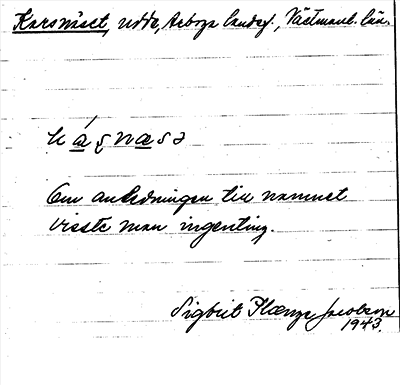 Karsnäset, udde, Arboga landsf., Västmanl. län.
kásnäsə
Om anledningen till namnet
visste man ingenting.
Sigbrit Plænge Jacobson
1943.